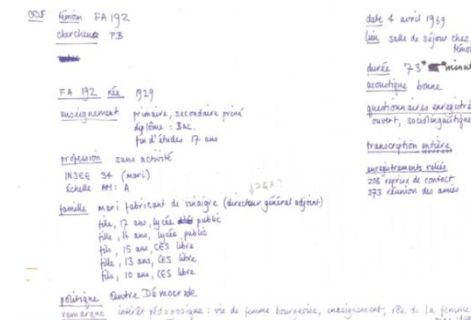 008 témoin FA 192
chercheuse PB
FA 192 née 1929
enseignement primaire, secondaire privé
diplôme : Bac.
fin d'études 17 ans
profession sans activité
INSEE 34 (mari)
Echelle AM: A
famille mari fabricant de vinaigre (directeur général adjoint)
fille, 17 ans, lycée public
fille, 16 ans, lycée public
fils, 15 ans, CES libre
fille, 13 ans, CES libre,
fils, 10 ans, CES libre
politique Centre Démocrate
remarque intérêt pédagogique : vie de femme bourgeoise, enseignement, rôle de la femme
date 4 avril 1969
lieu salle de séjour chez
témoin
durée 73 minut
acoustique bonne
questionnaires enregistré
ouvert, sociolinguistique
transcription entière
enregistrements reliés
reprise de contact
373 réunion des amies